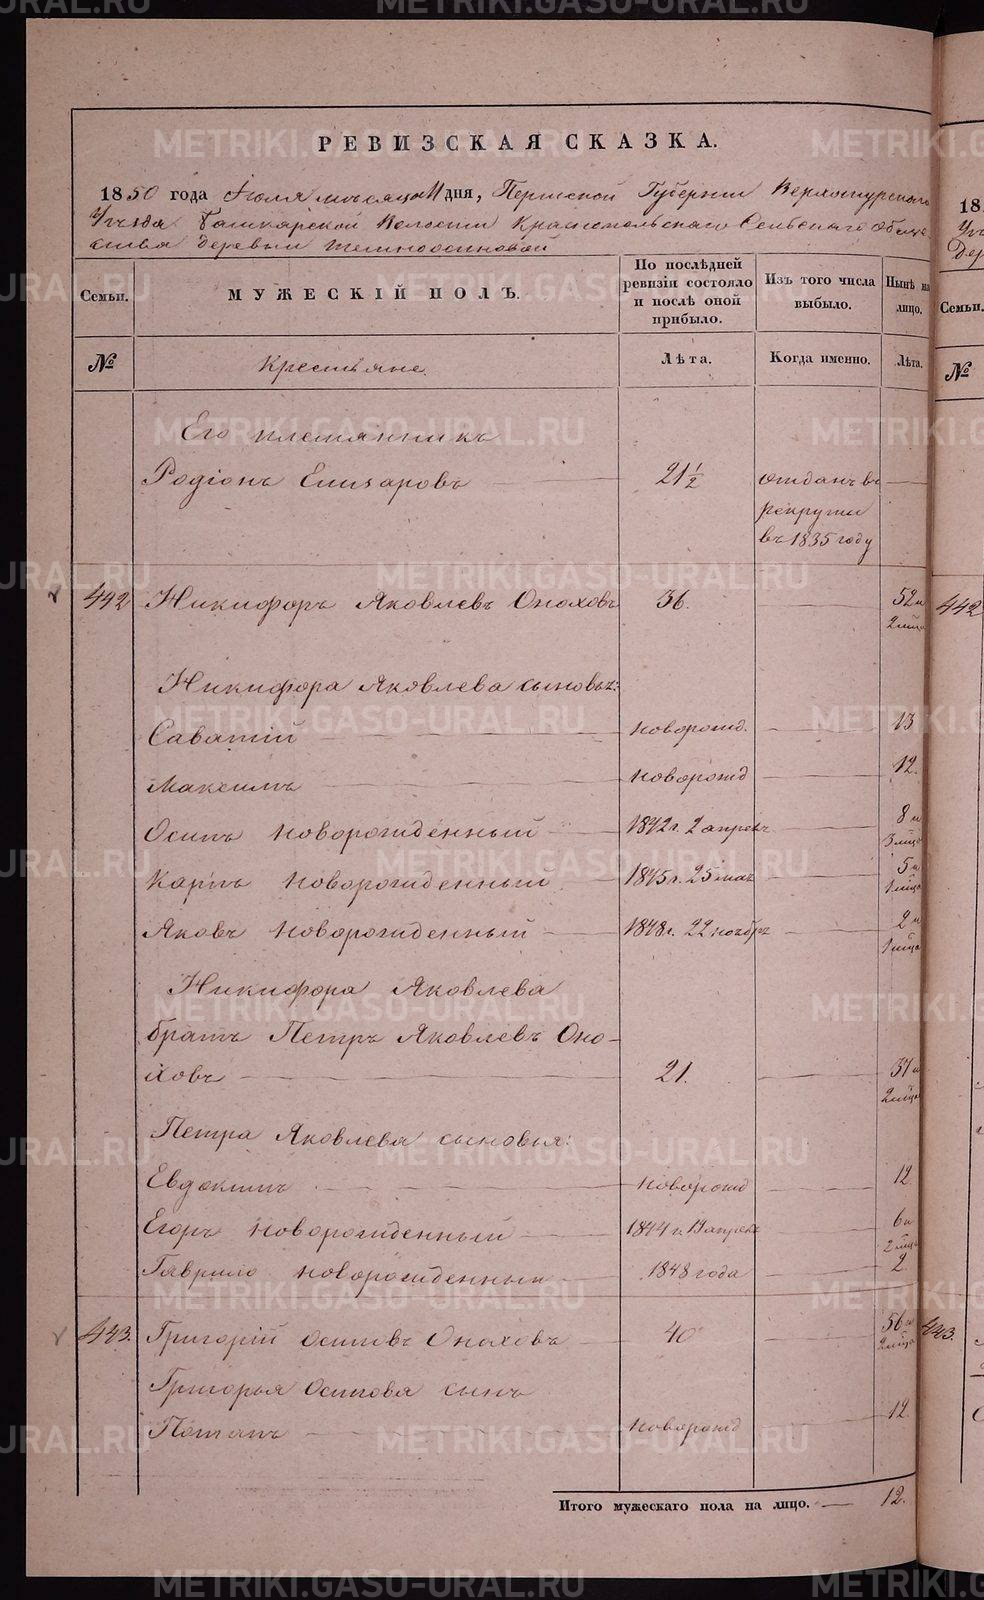 РЕВИЗСКАЯ СКАЗКА.
1850 года Июля месяца 11 дня, Пермской Губернии Верхотурского
Уѣзда Башкарской Волости Краснопольскаго Сельскаго обще-
ства Деревни Темноосиновой
Семьи.
МУЖЕСКІЙ ПОЛЪ.
По послѣдней ревизіи состояло и послѣ оной прибыло.
Изъ того числа выбыло.
Нынѣ на лицо.
№
Крестьяне.
Лѣта.
Когда именно.
Лѣта.
Его племянникъ
Родіонъ Елизаровъ 21½ отданъ въ
рекруты
въ 1835 году
442 Никифоръ Яковлевъ Оноховъ 36. 52 и
2 мѣся
Никифора Яковлева сыновья:
Саватій новорожд. 13
Максимъ новорожд 12.
Осипъ новорожденный 1842 г. 2 апрель 8 и
3 мѣся
Карпъ новорожденный 1845 г. 25 мая 5 и
1 мѣся
Яковъ новорожденный 1848 г. 22 ноябрь 2 и
1 мѣся
Никифора Яковлева
братъ Петръ Яковлевъ Оно-
ховъ 21. 37 и
2 мѣся
Петра Яковлева сыновья:
Евдокимъ новорожд 12
Егоръ новорожденный 1844 г. апрель 6 и
2 мѣся
Гаврило новорожденный 1848 года 2.
443. Григорій Осиповъ Оноховъ 40 56 и
2 мѣся
Григорья Осипова сынъ
Потапъ новорожд 12.
Итого мужескаго пола на лицо. 12.
18
Уѣ
Дер
Семьи.
№
442
443.
METRIKI.GASO-URAL.RU